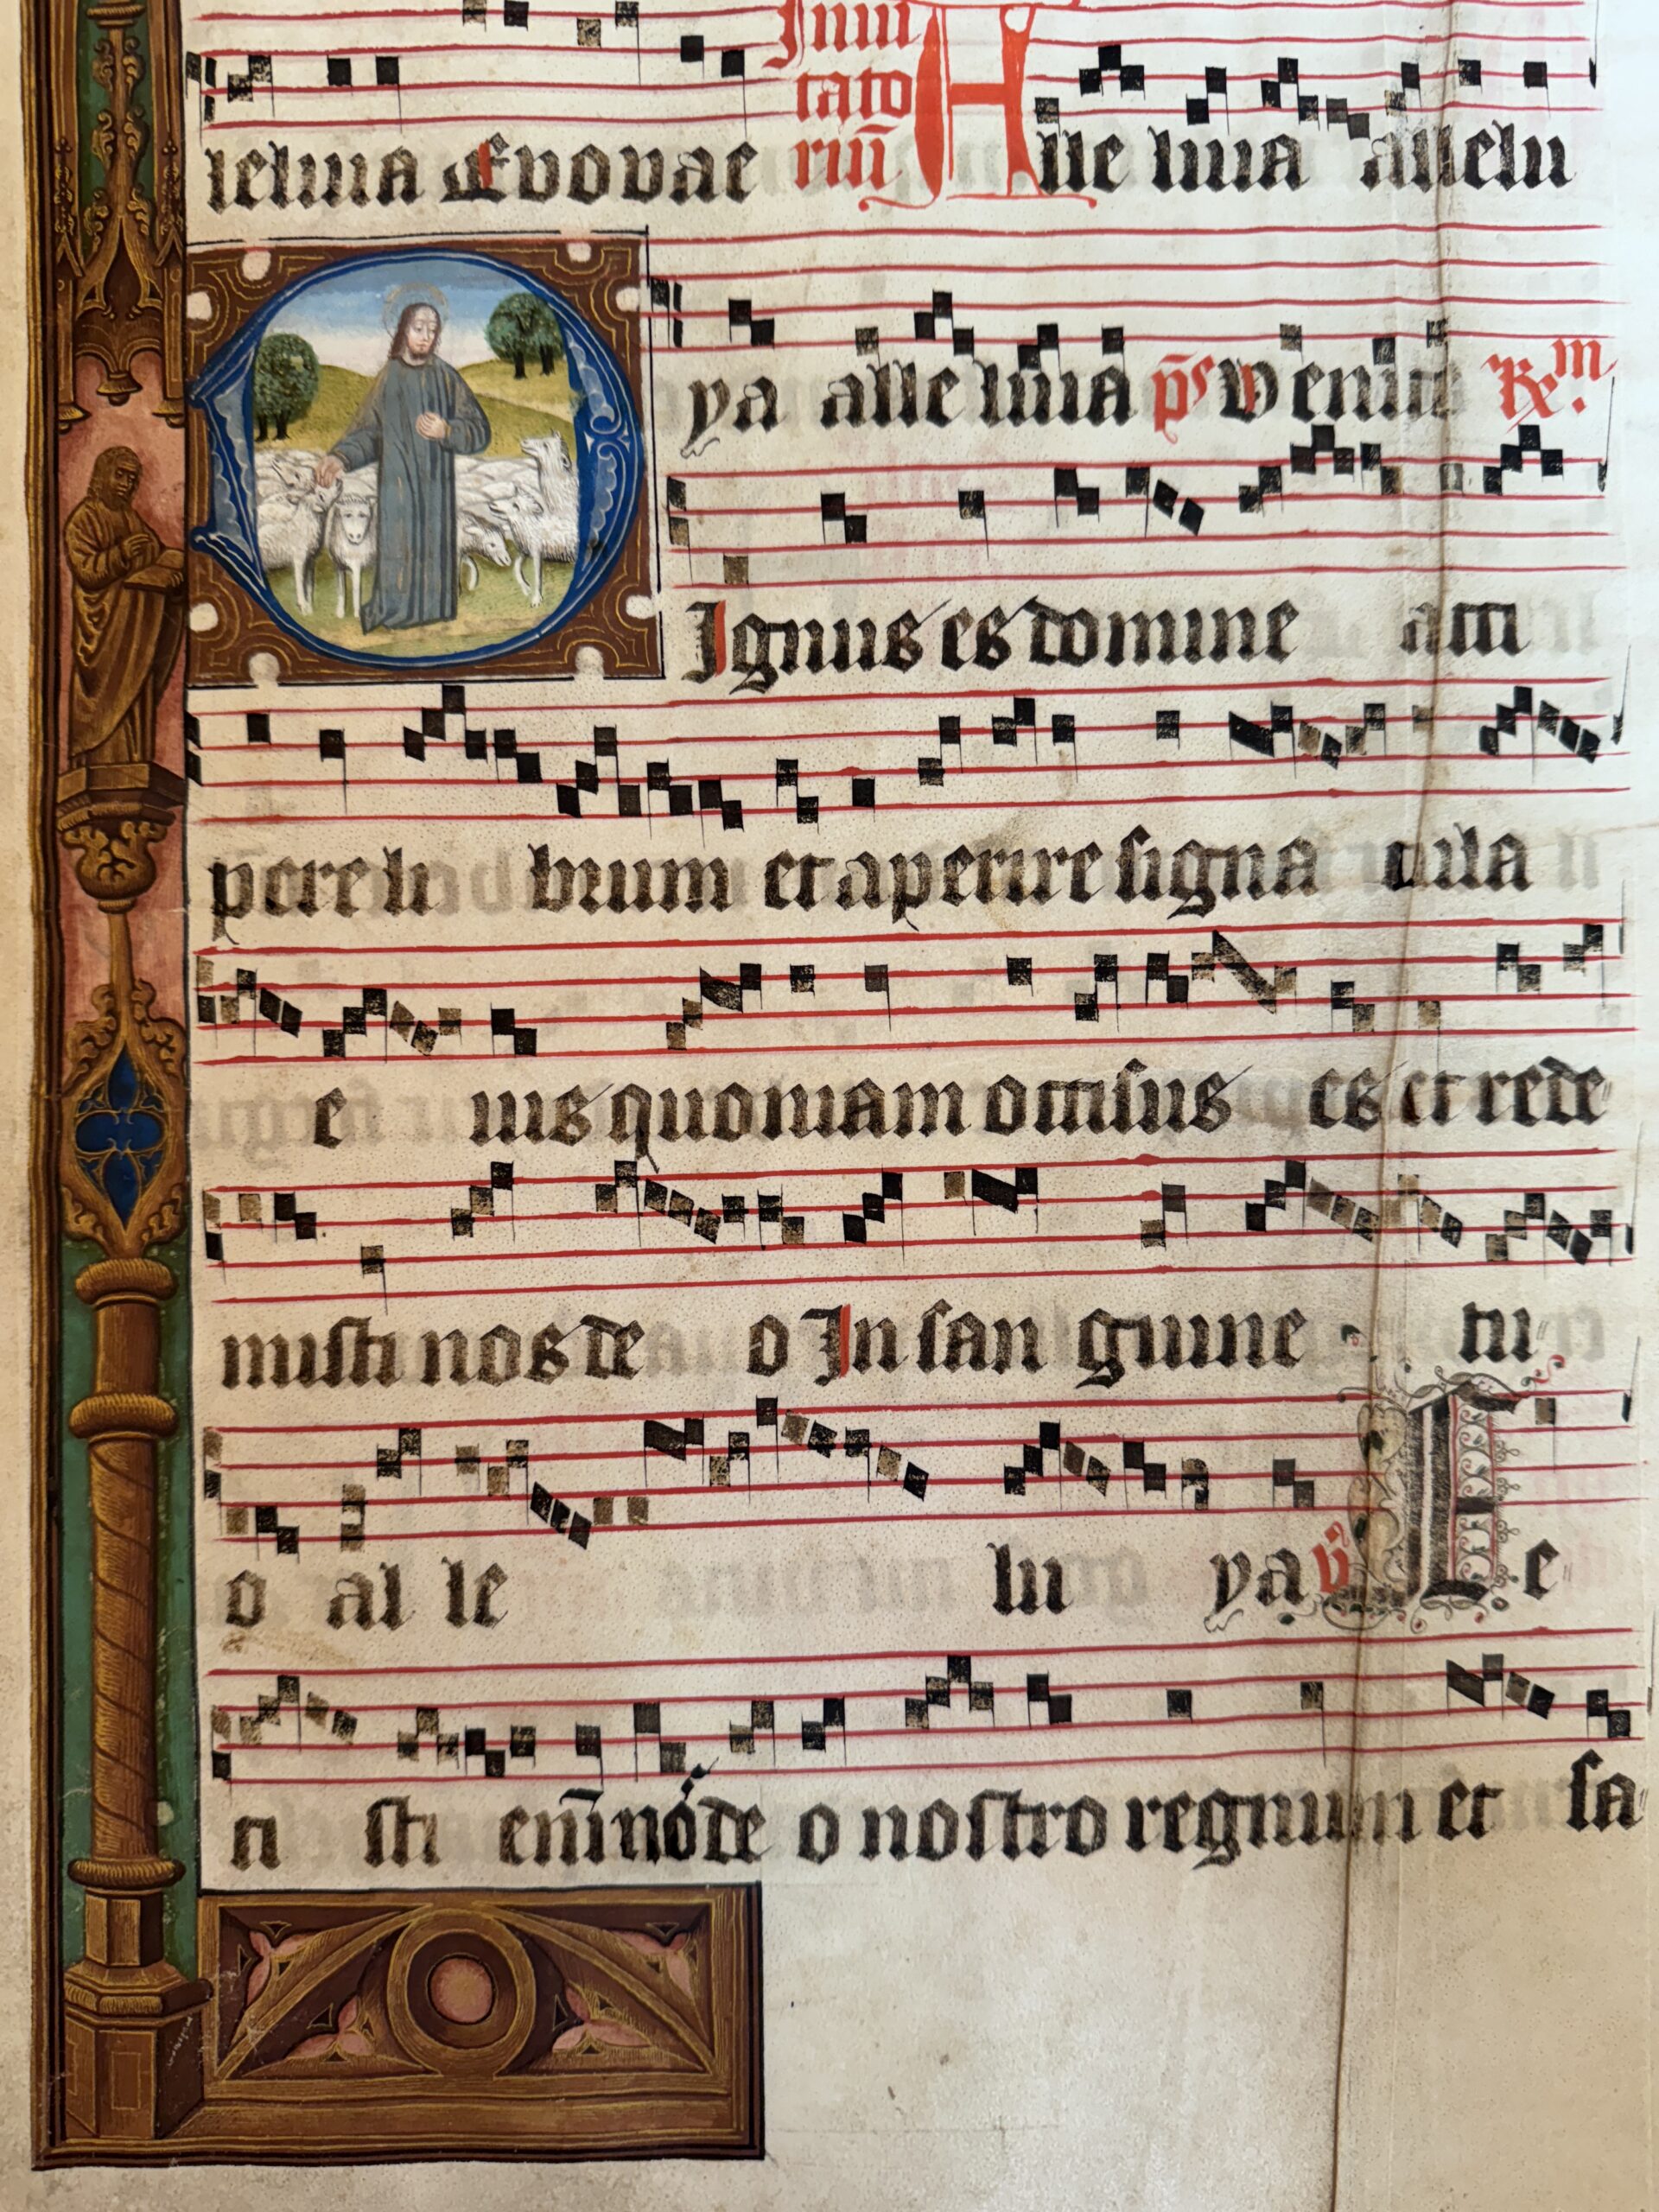 leluia Evovae Inui
tato
riū Alle luia allelu
ya alle luia ps Venite Re.m
DIgnus es domine acci
pere li brum et aperire signa cula
e ius quoniam occisus es et rede
misti nos de o In san guine tu
o al le lu ya v̄ Fe
ci sti enī nos de o nostro regnum et sa